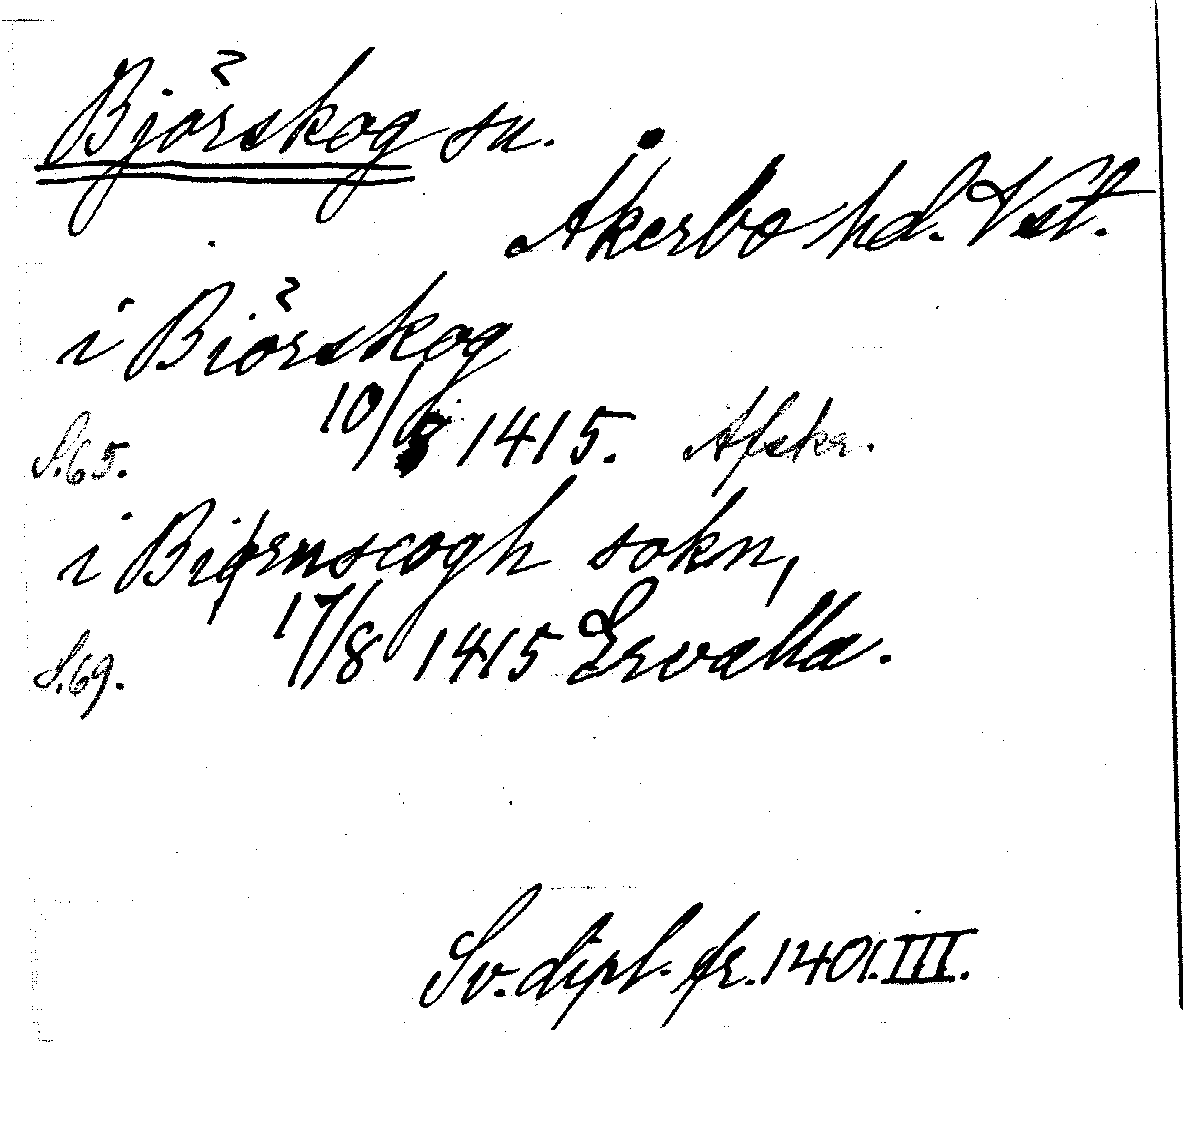 Björskog sn.
Åkerbo hd. Vstl.
i Biörskog
S. 65. 10/8 1415. Afskr.
i Biørnscogh sokn,
S. 69. 17/8 1415 Ervalla.
Sv. dipl. fr. 1401. III.